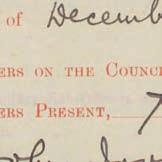 of Decemb
ERS ON THE COUNC
ERS PRESENT,